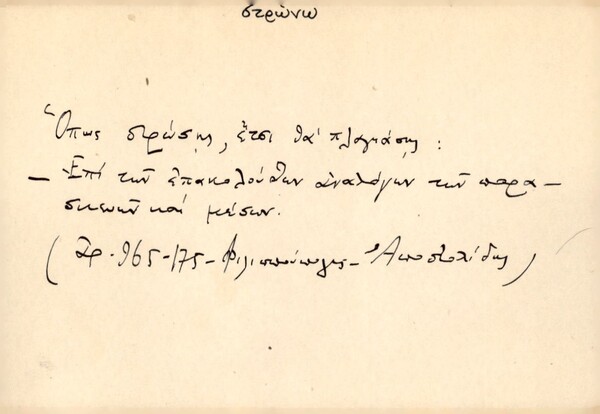 στρώνω
Ὅπως στρώσῃς, ἔτσι θὰ πλαγιάσῃς:
— Ἐπὶ τῶν ἐπακολούθων ἀναλόγων τῶν παρα—
σκευῶν καὶ μέσων.
( Ἀρ. 965-175 - Φιλιππούπολις - Ἀποστολίδης )